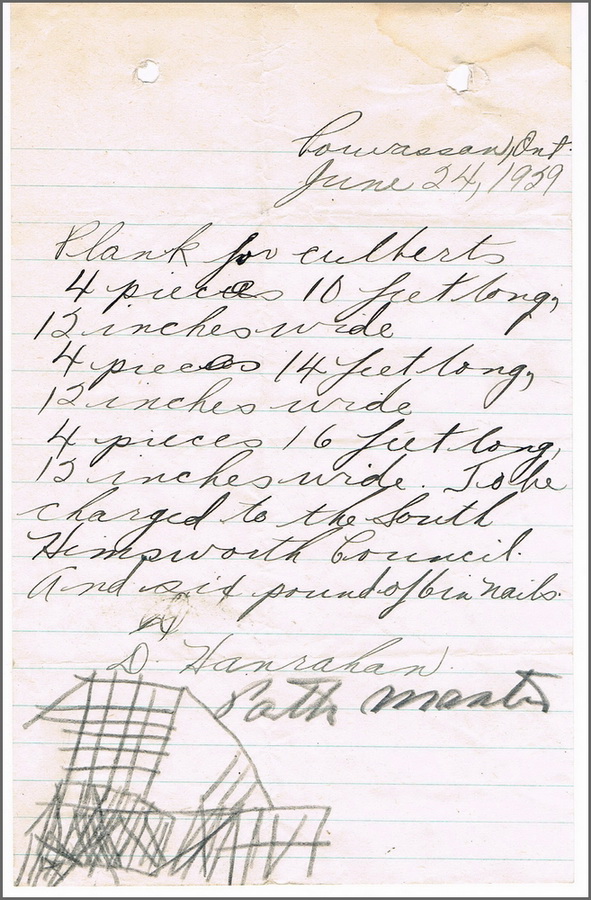 Powassan, Ont.
June 24, 1929
Plank for culberts
4 pieces 10 feet long,
12 inches wide
4 pieces 14 feet long,
12 inches wide
4 pieces 16 feet long,
12 inches wide. To be
charged to the South
Himsworth Council.
And six pound of 6 in nails.
D. Hanrahan.
Path Master